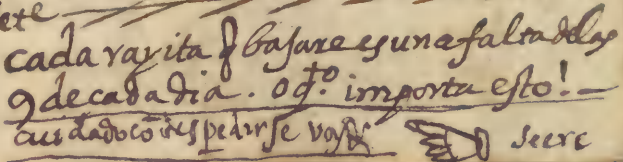 ete
cada rayita q bajare es una falta de las
9 de cada dia. o q.^to importa esto!
cuidado cō despedirse